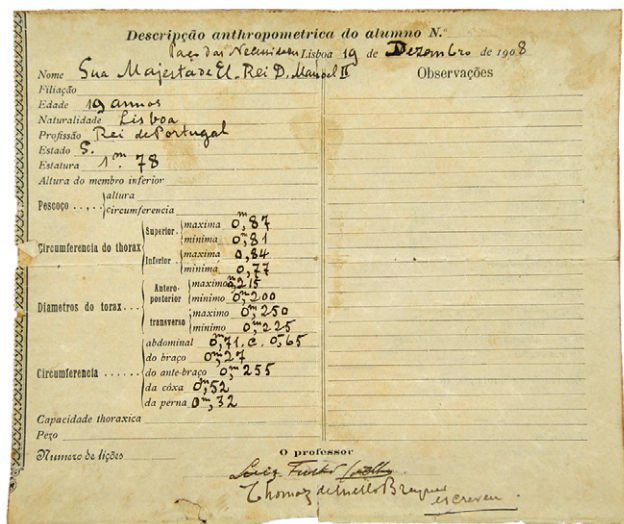 Descripção anthropometrica do alumno N.º
Paço das Necessidades Lisboa 19 de Dezembro de 1908
Nome Sua Majestade El-Rei D. Manoel II
Observações
Filiação
Edade 19 annos
Naturalidade Lisboa
Profissão Rei de Portugal
Estado S.
Estatura 1m. 78
Altura do membro inferior
Pescoço . . . . altura
circumferencia
Circumferencia do thorax Superior . maxima 0,m87
minima 0,m81
Inferior . maxima 0,84
minima 0,77
Diametros do torax . . . Antero-posterior maximo 0,m215
minimo 0,m200
transverso maximo 0,m250
minimo 0,m225
Circumferencia . . . . . . abdominal 0,m71. c. 0,m65
do braço 0,m27
do ante-braço 0,m255
da côxa 0,m52
da perna 0m,32
Capacidade thoraxica
Pezo
Numero de lições
O professor
Luiz
Thomaz de Mello Breyner
escreveu.